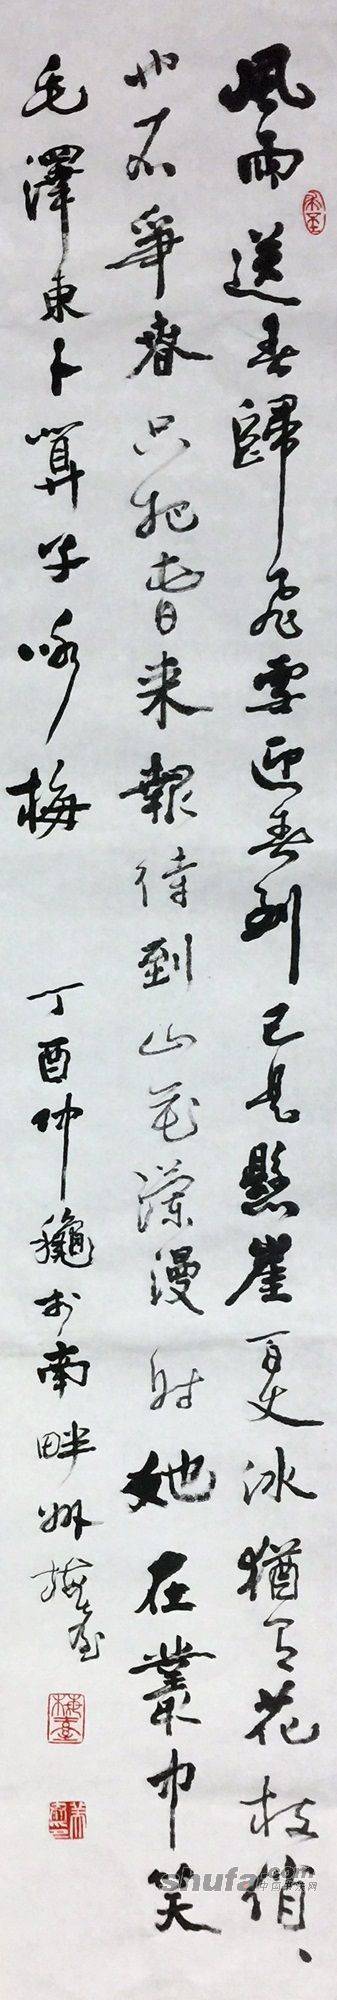 風雨送春歸飛雪迎春到已是懸崖百丈冰猶有花枝俏、
也不爭春只把春来報待到山花瀾漫时她在叢中笑
毛澤東卜算子咏梅
丁酉仲龝於南畔
shufa.com
中国书法网